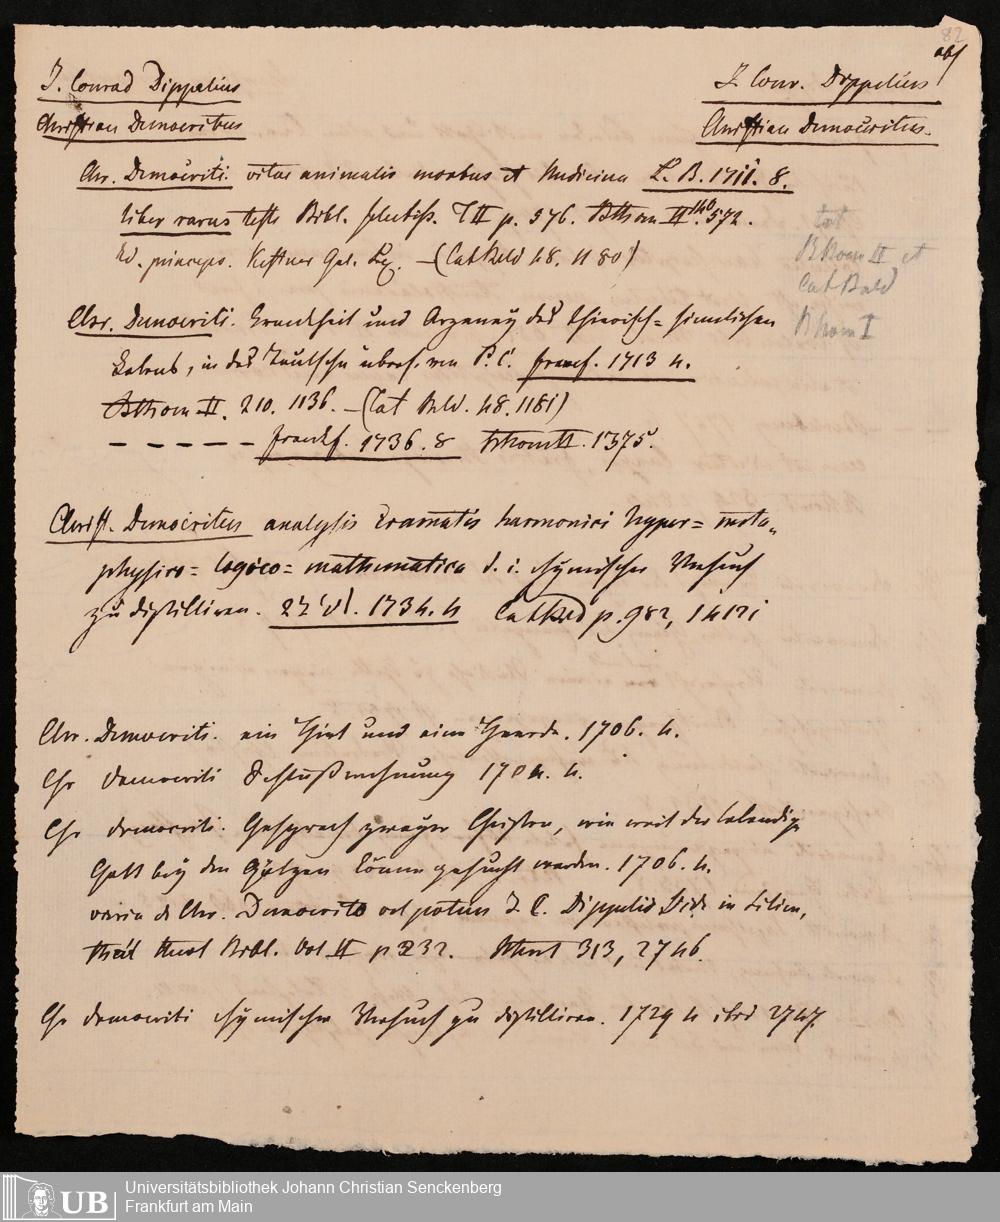 82
abs
J. Conrad Dippelius
J. Conr. Dippelius
Christian Democritus
Christian Democritus.
Chr. Democriti. vitae animalis morbus et Medicina L. B. 1711. 8.
liber rarus teste Bibl. p. 576. BThom II 572.
Ed. princeps. Kestner Gel. Lex. – (Cat Bald 48. 1180)
tot
BThom II et
Cat Bald
BThom I
Chr. Democriti. Krankheit und Arzeney des thierisch= sinnlichen
Lebens, in das Teutsche übers. von P. C. Francf. 1713 4.
BThom II. 210. 1136. – (Cat Bald. 48. 1181)
– – – – – Frankf. 1736. 8 BThom II. 1375.
Christ. Democritus analysis Cramatis harmonici hyper= meta„
physico= logico= mathematica d. i. chymischer Versuch
zu distilliren. 1734. 4 Cat p. 982, 14171
Chr. Democriti. ein Hirt und eine Heerde. 1706. 4.
Chr Democriti 4.
Chr democriti. Gespraech zweyer Christen, wie weit der lebendige
Gott bey den Götzen könne gesucht werden. 1706. 4.
varia de Chr. Democrito vel potius J. C. Dippelio vide in Lilien,
theol Bibl. Vol II p 232. 313, 2746.
Chr democriti chymischer Versuch zu distilliren. 1729 4 ibid 2747.
UB
Universitätsbibliothek Johann Christian Senckenberg
Frankfurt am Main